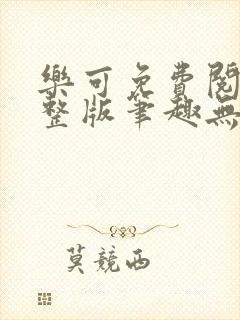 樂可免費閱
整版筆趣無
莫競西